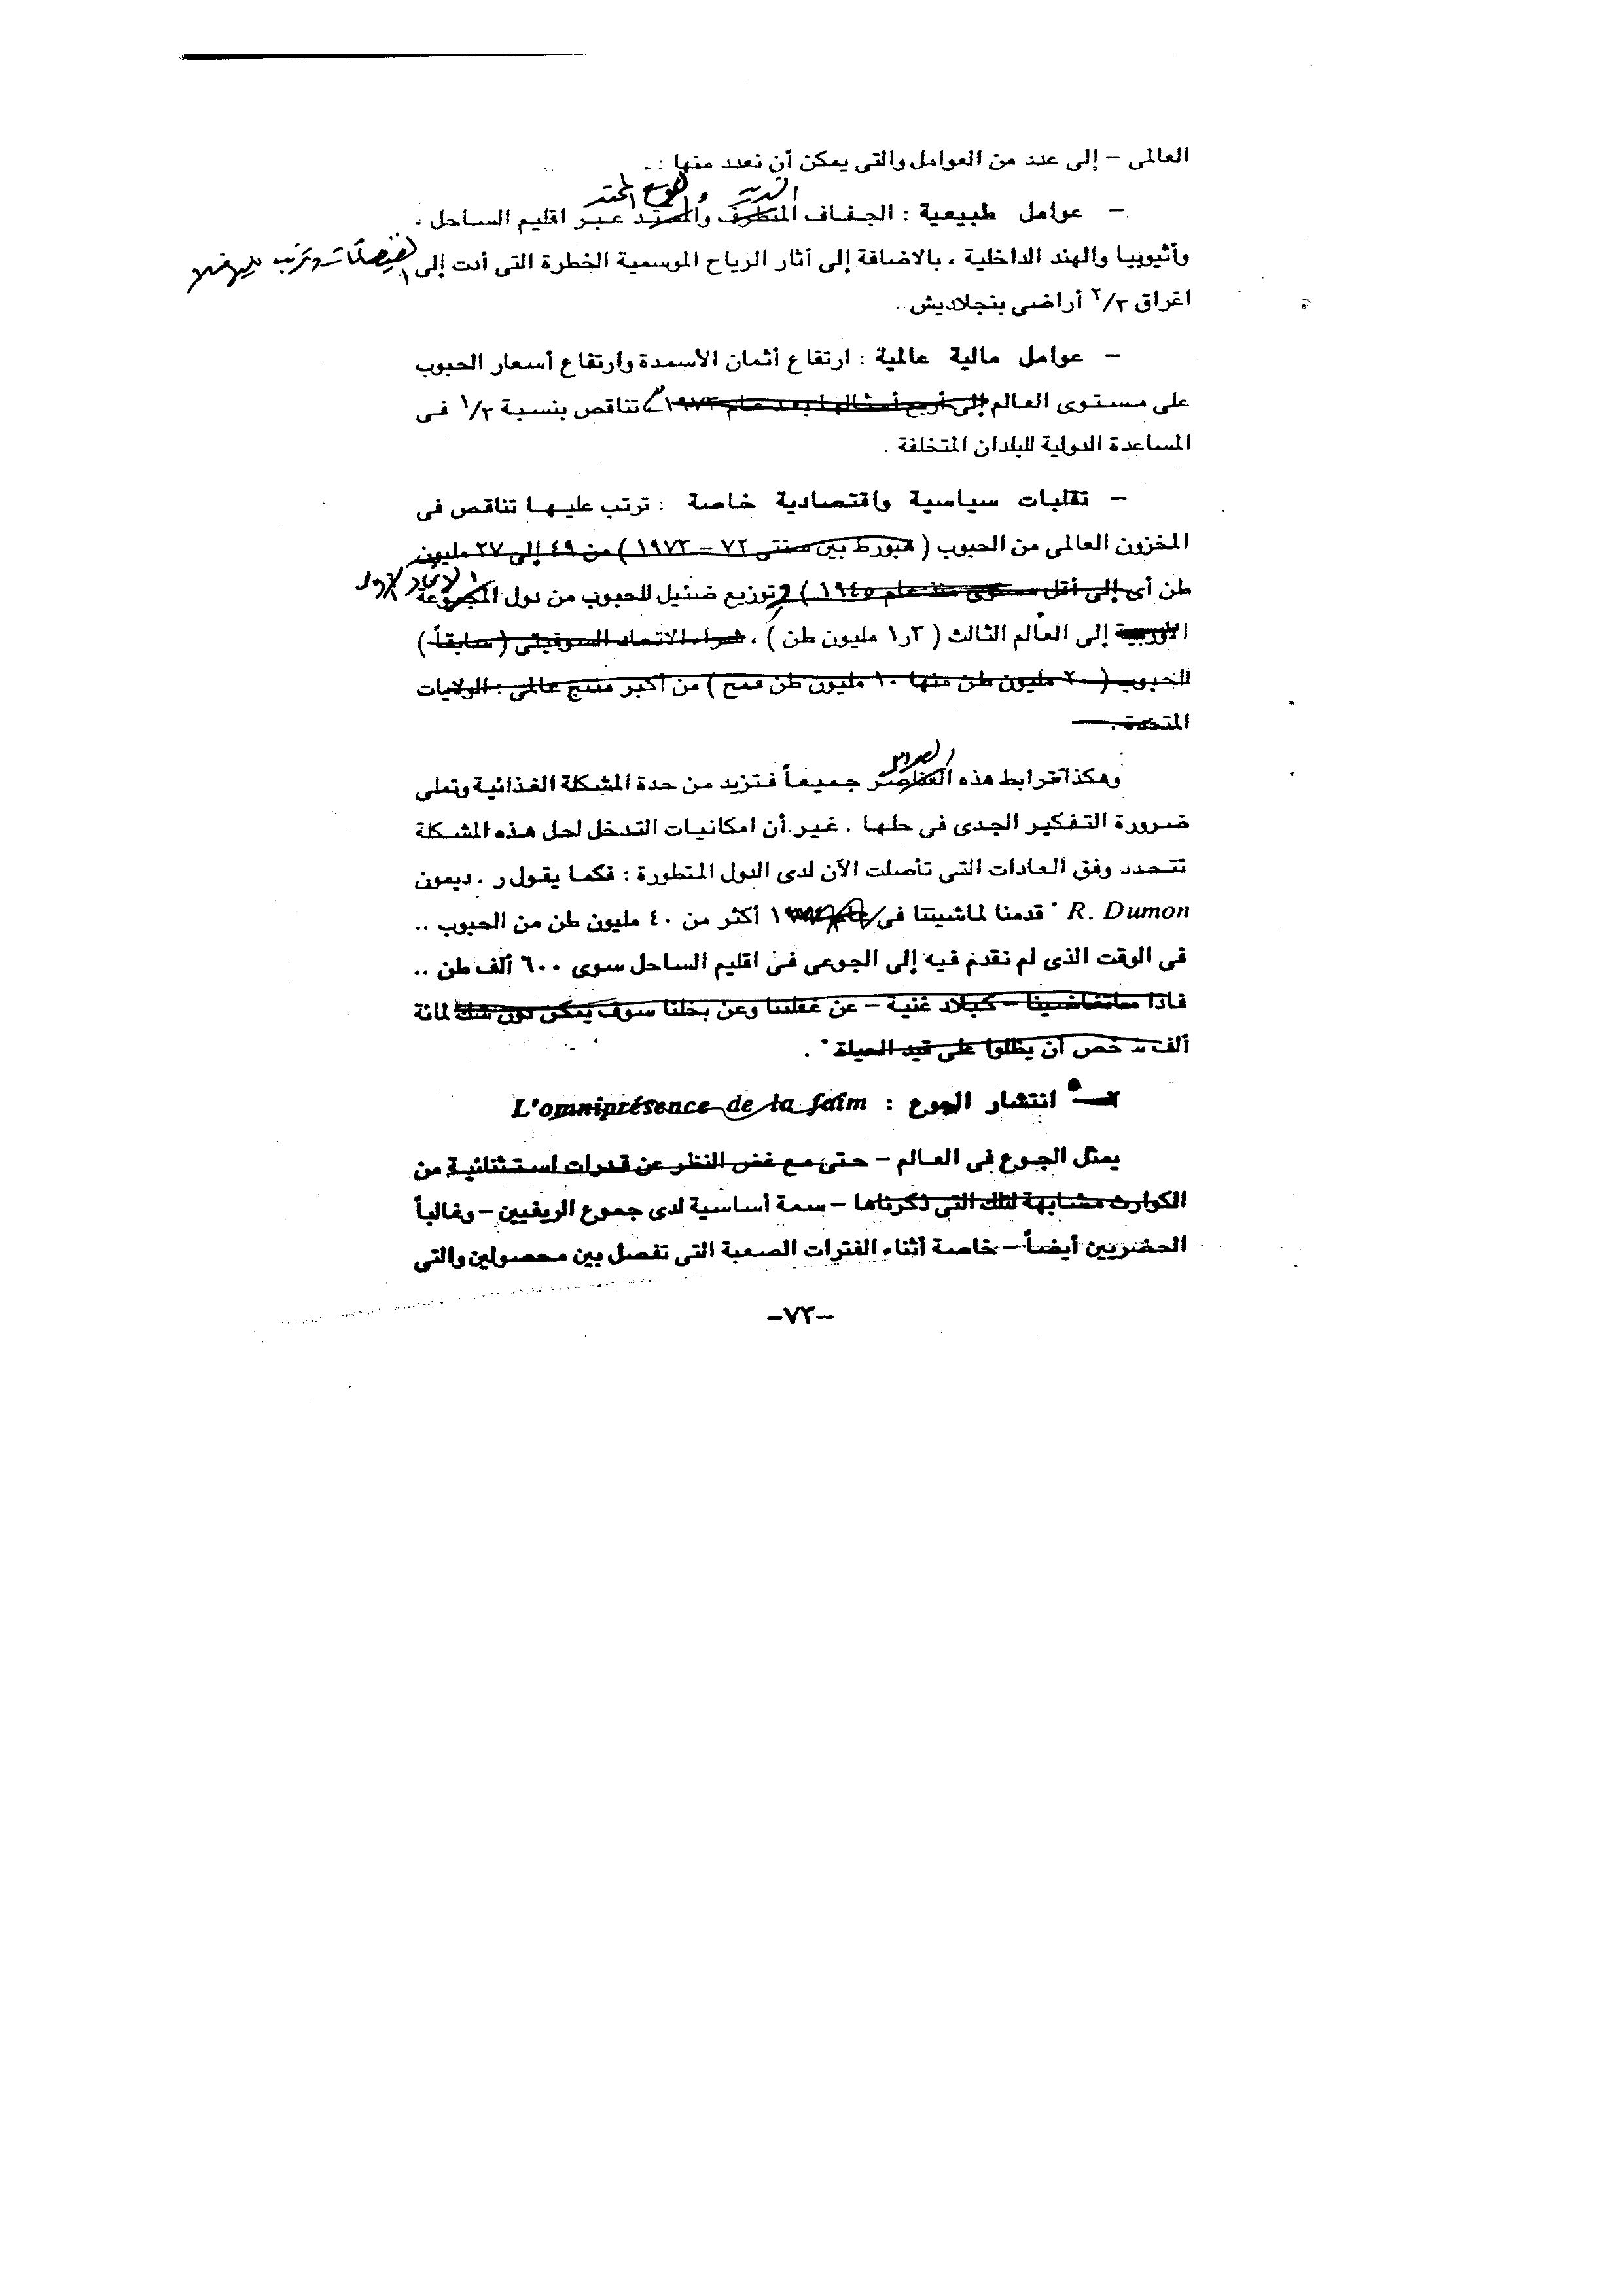 العالمى – إلى عدد من العوامل والتى يمكن أن نعدد منها : -
الشديد والواسع الممتد
– عوامل طبيعية : الجفاف المتطرف والممتد عبر اقليم الساحل ،
وأثيوبيا والهند الداخلية ، بالاضافة إلى آثار الرياح الموسمية الخطرة التى أدت إلى
اغراق ٢/٣ أراضى بنجلاديش .
– عوامل مالية عالمية : ارتفاع أثمان الأسمدة وارتفاع أسعار الحبوب
على مستوى العالم إلى أربع أمثالها بعد عام ١٩٧٢ تناقص بنسبة ١/٣ فى
المساعدة الدولية للبلدان المتخلفة .
– تقلبات سياسية واقتصادية خاصة : ترتب عليها تناقص فى
المخزون العالمى من الحبوب ( هبورط بين سنتى ٧٢ – ١٩٧٣ ) من ٤٩ إلى ٢٧ مليون
طن أى إلى أقل مستوى منذ عام ١٩٤٥ ) وتوزيع ضئيل للحبوب من دول المجموعة
الأوربية إلى العالم الثالث ( ١٫٣ مليون طن ) ، شراء الاتحاد السوفيتى ( سابقاً )
للحبوب ( ٢٠ مليون طن منها ١٠ مليون طن قمح ) من أكبر منتج عالمى : الولايات
المتحدة .
وهكذا تترابط هذه العناصر جميعاً فتزيد من حدة المشكلة الغذائية وتملى
ضرورة التفكير الجدى فى حلها . غير أن امكانيات التدخل لحل هذه المشكلة
تتحدد وفق العادات التى تأصلت الآن لدى الدول المتطورة : فكما يقول ر . ديمون
R. Dumon " قدمنا لماشيتنا فى عام أكثر من ٤٠ مليون طن من الحبوب ..
فى الوقت الذى لم نقدم فيه إلى الجوعى فى اقليم الساحل سوى ٦٠٠ ألف طن ..
فاذا ماتغاضينا – كبلاد غنية – عن غفلتنا وعن بخلنا سوف يمكن دون شك لمائة
ألف شخص أن يظلوا على قيد الحياة " .
انتشار الجوع : L'omniprésence de la faim
يمثل الجوع فى العالم – حتى مع غض النظر عن قدرات استثنائية من
الكوارث مشابهة لتلك التى ذكرناها – سمة أساسية لدى جموع الريفيين – وغالباً
الحضريين أيضاً – خاصة أثناء الفترات الصعبة التى تفصل بين محصولين والتى
–٧٣–